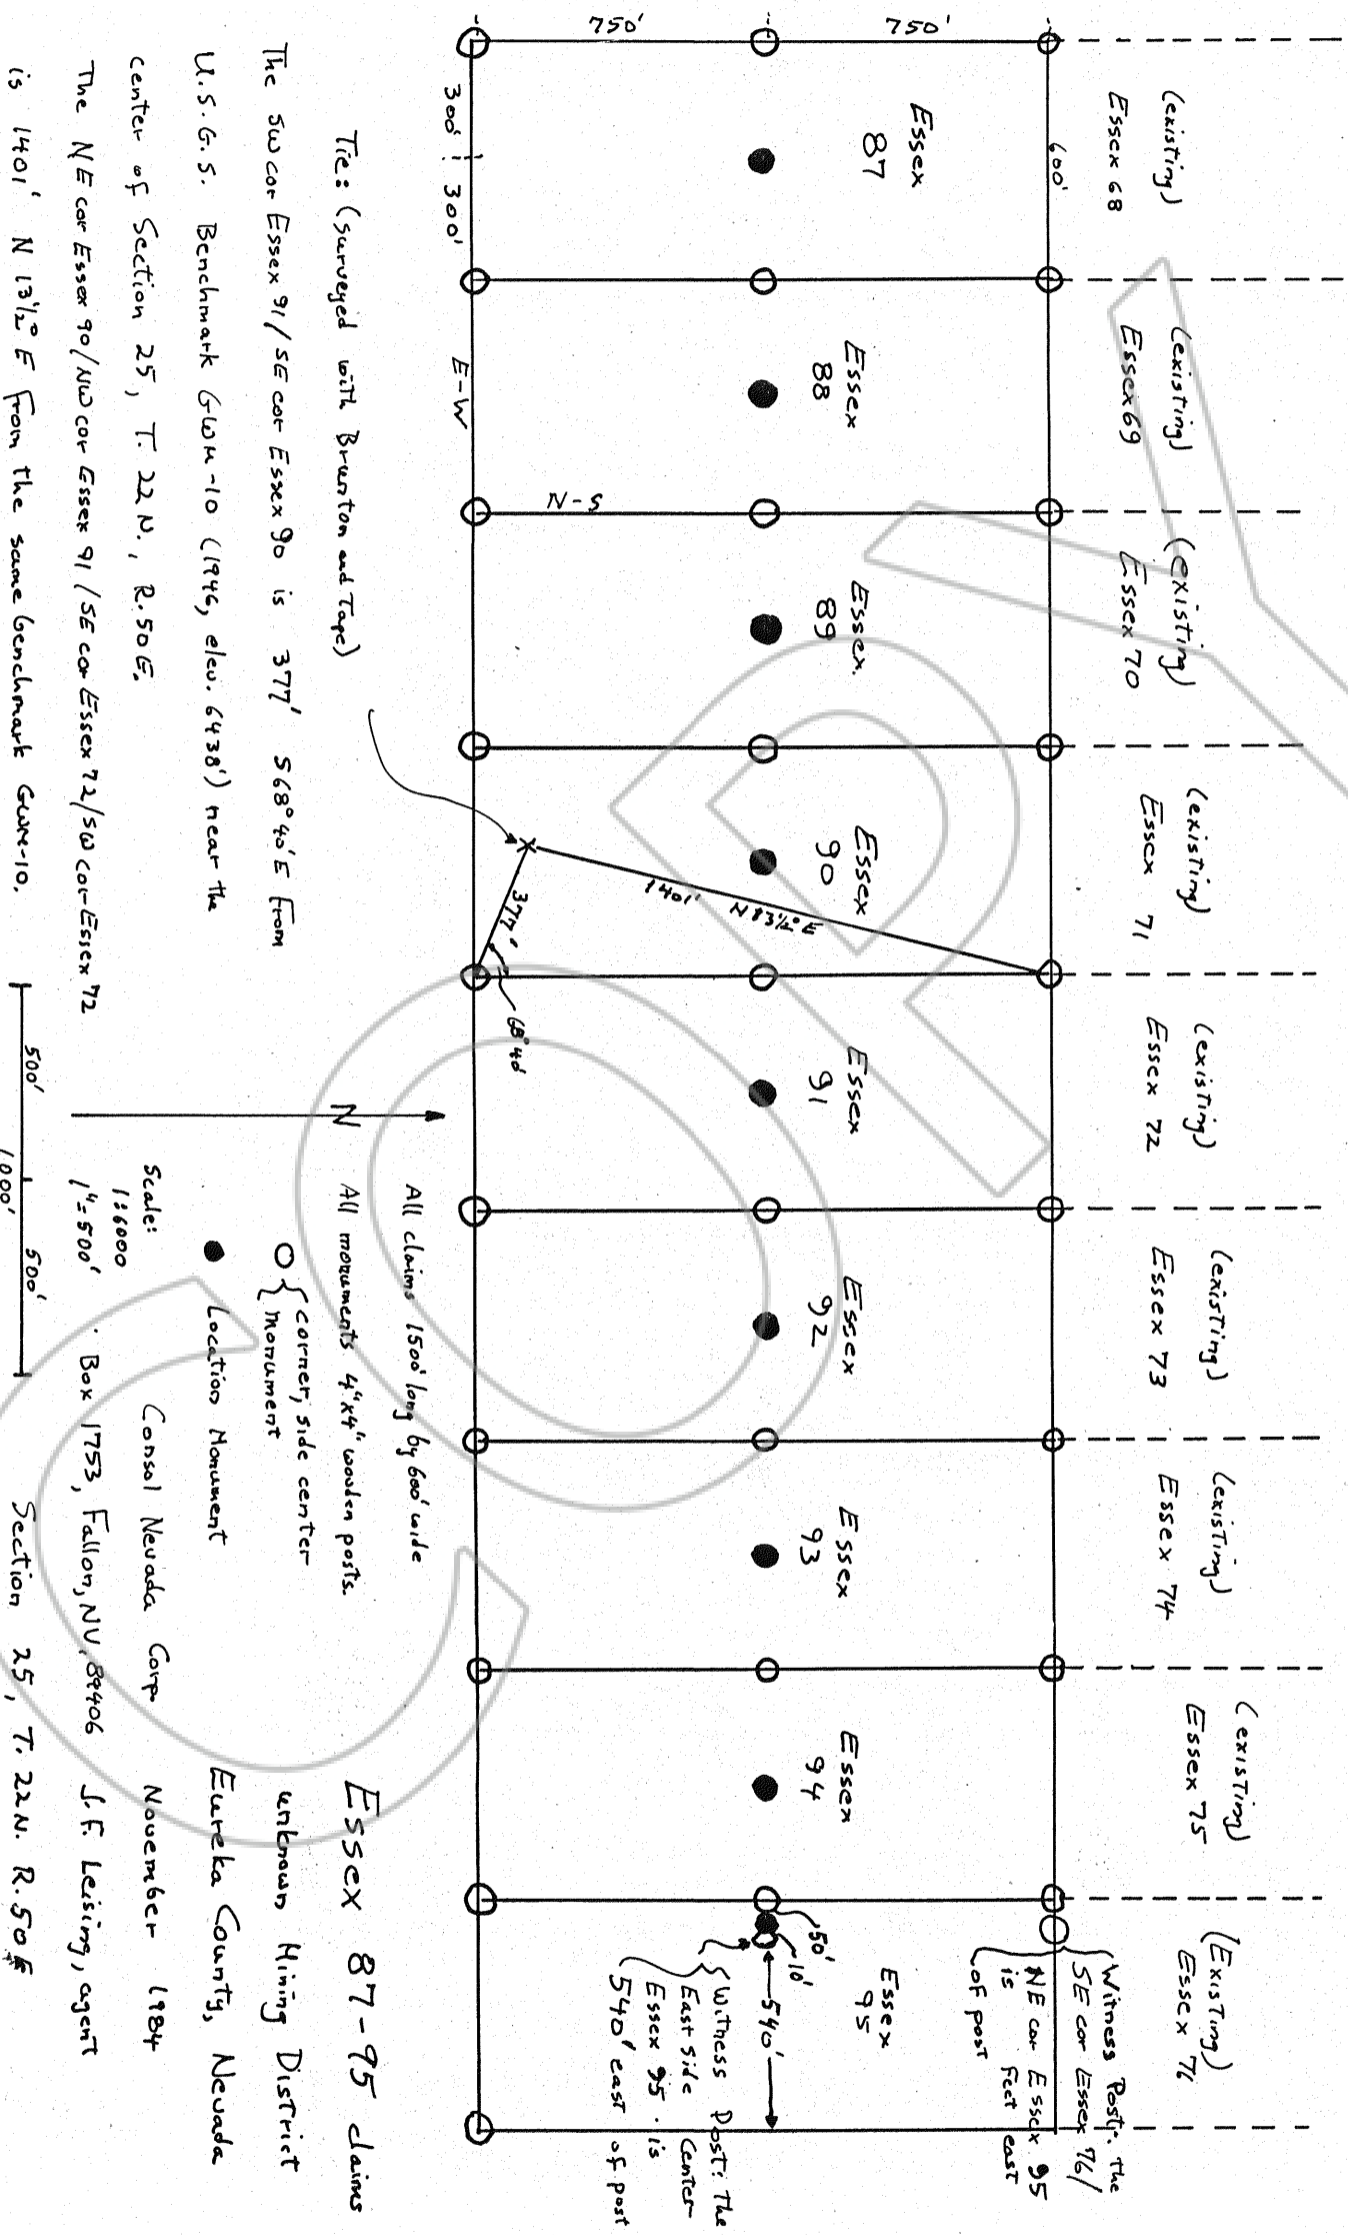 (existing)
Essex 68
(existing)
Essex 69
(existing)
Essex 70
(existing)
Essex 71
(existing)
Essex 72
(existing)
Essex 73
(existing)
Essex 74
(existing)
Essex 75
(Existing)
Essex 76
Witness Post: the
SE cor Essex 76/
NE cor Essex 95
is feet east
of post
750'
750'
600'
Essex
87
Essex
88
Essex
89
Essex
90
Essex
91
Essex
92
Essex
93
Essex
94
Essex
95
50'
10'
540'
Witness Post: The
East side Center
Essex 95 is
540' east of post
1401'
N 13½° E
377'
68°40'
N-S
300'
300'
E-W
Tie: (surveyed with Brunton and Tape)
The SW cor Essex 91/SE cor Essex 90 is 377' S68°40'E from
U.S.G.S. Benchmark GWM-10 (1946, elev. 6438') near the
center of Section 25, T. 22 N., R. 50 E.
The NE cor Essex 90/NW cor Essex 91/SE cor Essex 72/SW cor Essex 72
is 1401' N 13½° E from the same benchmark GWM-10.
All claims 1500' long by 600' wide
All monuments 4"x4" wooden posts.
N
corner, side center
monument
Location Monument
Scale:
1:6000
1"=500'
500'
500'
1000'
Essex 87-95 claims
unknown Mining District
Eureka County, Nevada
Consol Nevada Corp. November 1984
. Box 1753, Fallon, NV, 89406 J.F. Leising, agent
Section 25, T. 22 N. R. 50 E
COPY